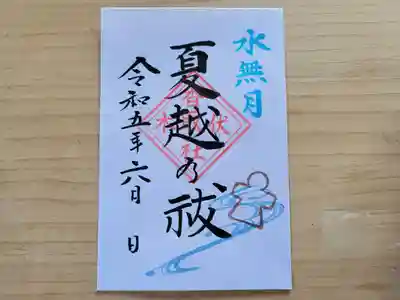 水無月
夏越の祓
令和五年六月 日